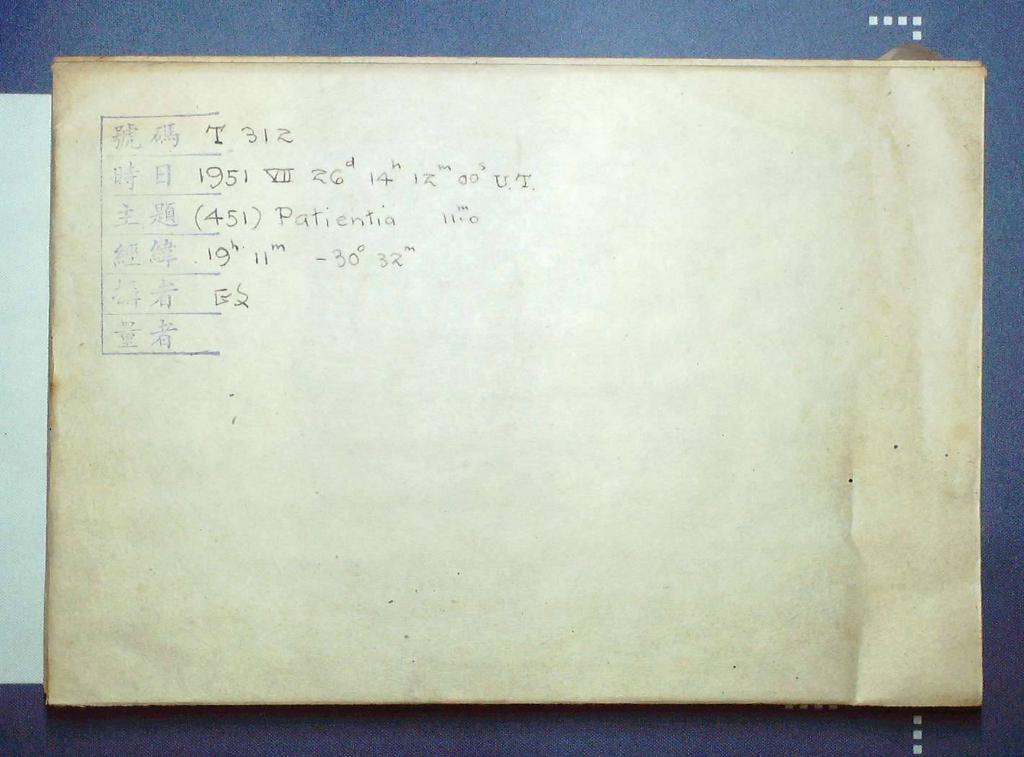 號碼 T 312
時日 1951 VII 26ᵈ 14ʰ 12ᵐ 00ˢ U.T.
主題 (451) Patientia 11ᵐ.0
經緯 19ʰ 11ᵐ -30° 32ᵐ
攝者
量者